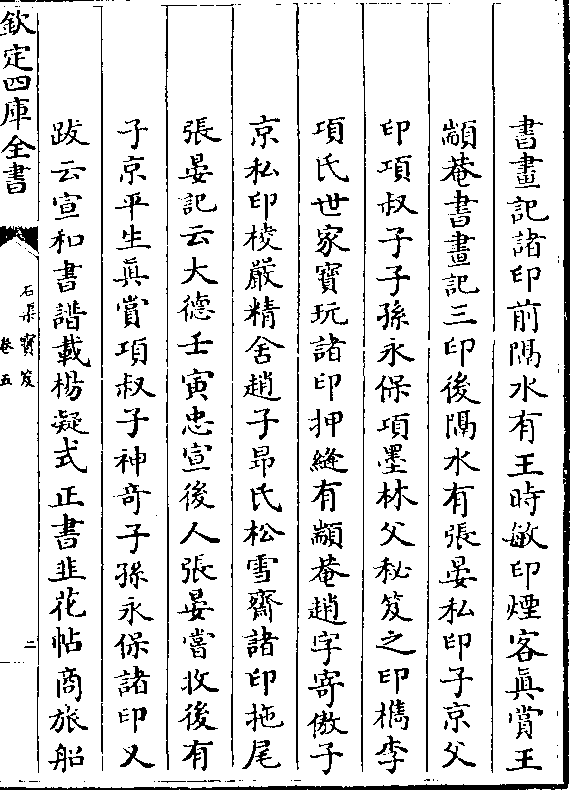 書畫記諸印前隔水有王時敏印煙客真賞王
顓菴書畫記三印後隔水有張晏私印子京父
印項叔子子孫永保項墨林父秘笈之印檇李
項氏世家寶玩諸印押縫有顓菴趙字寄傲子
京私印棱嚴精舍趙子昂氏松雪齋諸印拖尾
張晏記云大德壬寅忠宣後人張晏嘗收後有
子京平生真賞項叔子神奇子孫永保諸印又
跋云宣和書譜載楊凝式正書韭花帖商旅船
欽定四庫全書
石渠寶笈
卷五
二